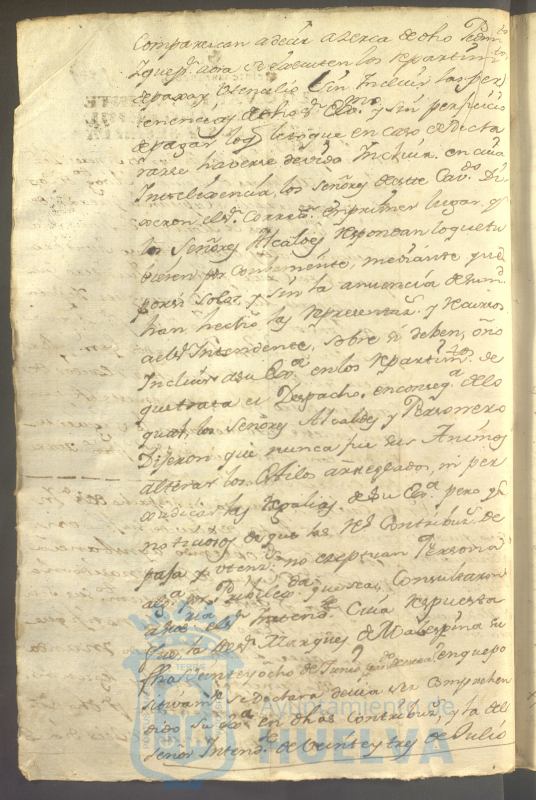 Comparezcan a decir azerca de dho Pedimto
y que pr aora se executen los repartimtos
de paxa y utensilio sin Incluir las per
tenencias de dho sr Exmo y sin perjuicio
de pagar los en caso de decla
rarse haverse devido Incluir, en cuia
Intelixencia, los Señores de este Cavdo Di
xeron el sr Correxr en primer lugar q
los Señores Alcaldes respondan lo que tu
bieren por combeniente, mediante que
por si solos, y sin la anuencia de sumd
han hecho las representazs y recursos
a el sr Intendente, sobre si deben, o no
Incluir a su Exa en los repartimtos de
que trata el Despacho, en consega de lo
qual, los Señores Alcaldes y Personero
Dijeron que nunca fue su Animo
alterar los estilos arreglados, ni per
xudicar las regalias de su Exa pero q
noticiosos de que las Rs Contribuzs de
paxa y utenso no exeptuan Persona
alga Consultaron
a el sr Intendte Cuia respuesta
fue, la del sr Marques de Malespina su
fha veinte y ocho de Junio en que po
sitivamte se declara devia ser Comprehen
dido su Exa en dhas Contribuzs, y la del
señor Intendte de veinte y tres de Julio
Ayuntamiento de
HUELVA